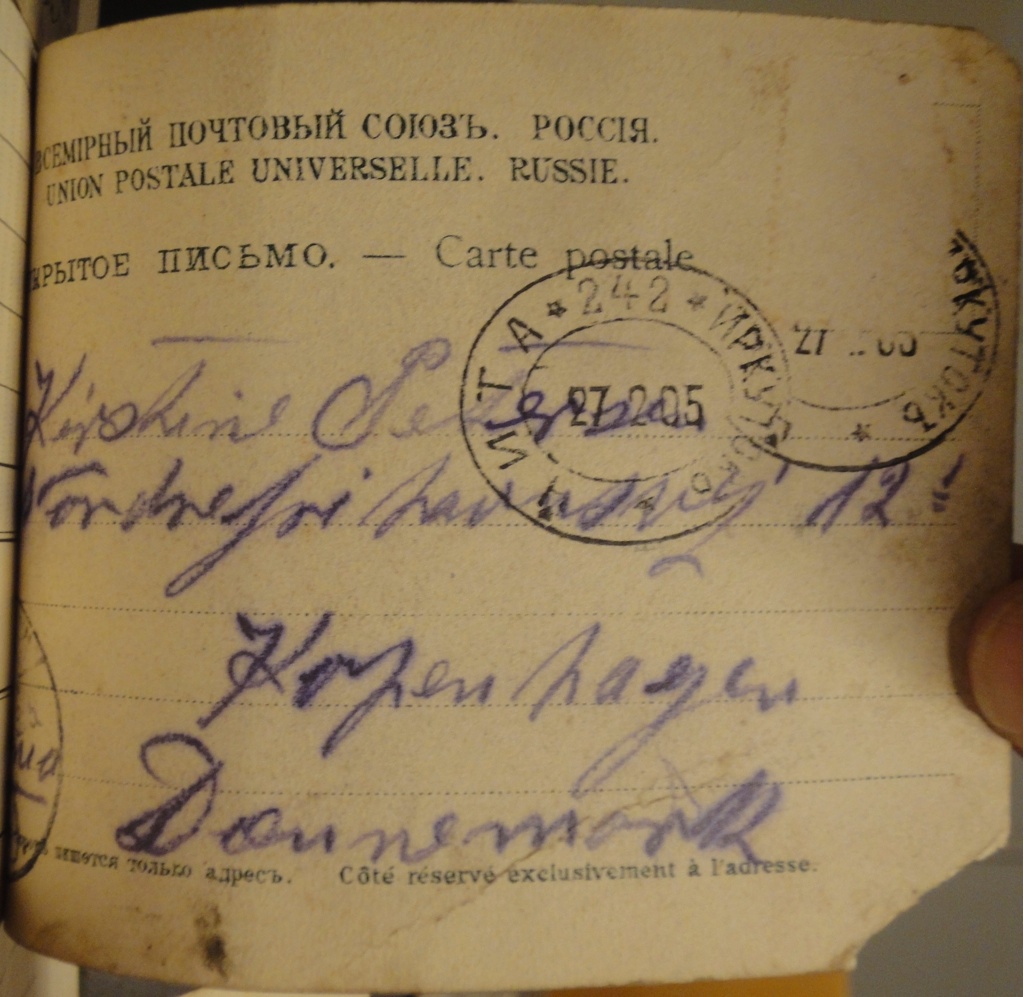 ВСЕМІРНЫЙ ПОЧТОВЫЙ СОЮЗЪ. РОССІЯ.
UNION POSTALE UNIVERSELLE. RUSSIE.
КРЫТОЕ ПИСЬМО. — Carte postale
* 242 * ИРКУТСКЪ * ЧИТА
27 2 05
РКУТСКЪ *
27 2 05
Kirstine Petersen
Nordrefrihavnsvej 12
Kopenhagen
Dannemark
пишется только адресъ. Côté réservé exclusivement à l'adresse.